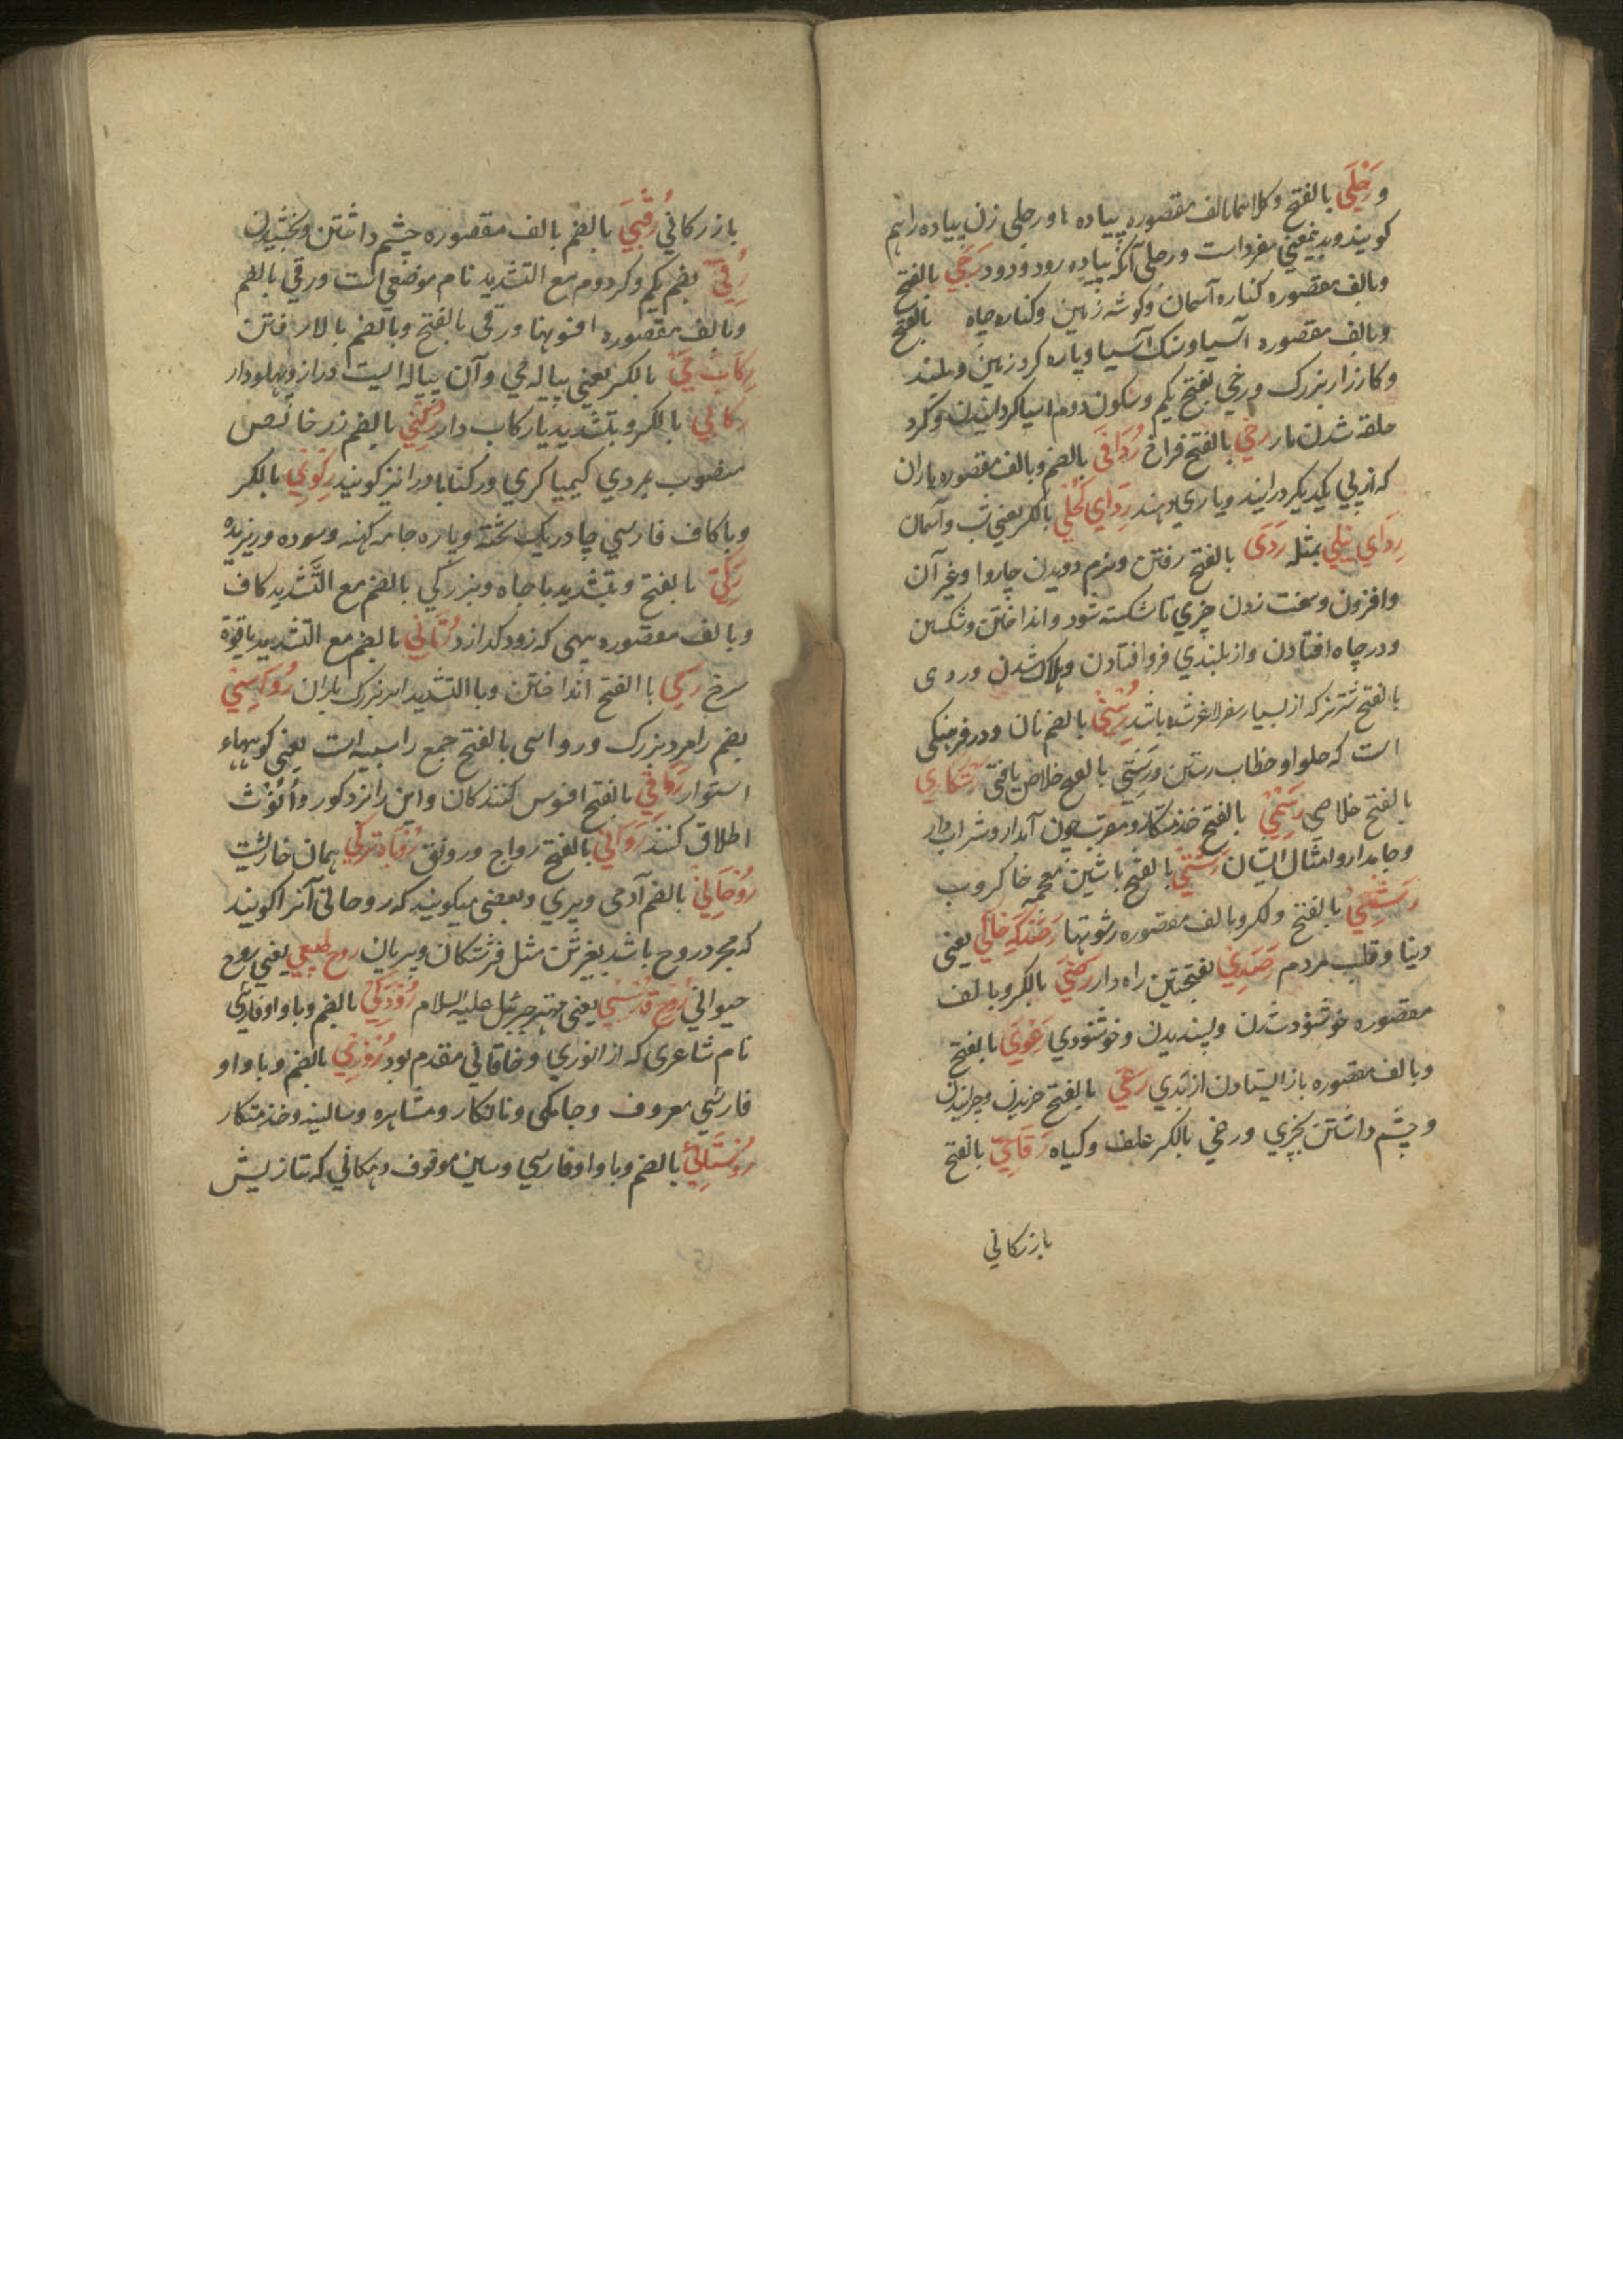 و رَجْلَی بالفتح و کلاهما بالف مقصوره پیاده ها و رجلی زن پیاده را هم
کویند و بدینمعنی مفرد است و رجلی آنکه پیاده رود و دود رَجَي بالفتح
وبالف مقصوره کناره آسمان و کوشه زمین و کناره چاه بالفتح
وبالف مقصوره آسیا و سنک آسیا و پاره کرد زمین و بلند
و کارزار بزرک و رخی بفتح یکم و سکون دوم آسیا کردانیدن و کرد
حلقه شدن مار رخي بالفتح فراخ رُدَافَی بالضم و بالف مقصوره یاران
که از پی یکدیکر درایند و یاری دهند رِدَاي کُحْلي بالکسر یعنی شب و آسمان
رِدَاي نیلي بمثله رَدَی بالفتح رفتن و نرم دویدن چاروا و غیر آن
و افزون و سخت زدن چیزي تا شکسته شود و انداختن و شکستن
و در چاه افتادن و از بلندي فرو افتادن و هلاک شدن و ردی
بالفتح شتر نر که از بسیار سفر لاغر شده باشد رُسْتي بالضم نان و در فرهنکی
است که حلوا و خطاب رستن و رَستي بالفتح خلاص یافتی رستکاري
بالفتح خلاصی رَسْمِيّ بالفتح خذمتکار و مقرب چون آبدار و شراب دار
و جامدار و امثال ایشان رَشْتي بالفتح با شین معجمه خاکروب
رَشْي بالفتح و لکسر وبالف مقصوره رشوتها رَصَدکَه خَاکي یعنی
دنیا و قلب مردم رَصَدِي بفتحتین راه دار رِضَی بالکسر و بالف
مقصوره خوشنود شدن و پسندیدن و خوشنودي رَعْوَي بالفتح
وبالف مقصوره باز ایستادن از بدي رَعْي بالفتح چریدن و چرانیدن
و چشم داشتن بچیزي و رعي بالکسر علف و کیاه رَقَاحِيّ بالفتح
بازرکاني
بازرکاني رُقْبَي بالضم بالف مقصوره چشم داشتن و بخشیدن
رُقِيّ بضم یکم و کسر دوم مع التشدید نام موضعی است و رقي بالضم
وبالف مقصوره افسونها و رقی بالفتح وبالضم بالا رفتن
رِکَاب مَي بالکسر یعنی پیاله می و آن پیاله ایست دراز و پهلودار
رکابي بالکسر و بتشدید یا رکاب دار رُکْنِي بالضم زر خالص
منصوب بمردي کیمیا کري و رکنابادرا نیز کویند رِکُوْيِ بالکسر
و با کاف فارسي چادر یک تخته و پاره جامه کهنه و سوده و ریزیده
رَکِيّ بالفتح و بتشدید با چاه و بزرکي بالضم مع التشدید کاف
وبالف مقصوره پیهی که زود کدازد رُمَّانِي بالضم مع التشدید یاقوة
سرخ رَمِي با الفتح انداختن و با التشدید ابر بزرک باران رُوَاسِي
بضم را مرد بزرک و رواسی بالفتح جمع راسیه است یعنی کوههاء
استوار رَوَاقِي بالفتح افسوس کنندکان و این را بذکور و أُنُوْث
اطلاق کنند رَوَائي بالفتح رواج و رونق رُوْبَاه تُرکي همان خارپشت
رُوْحَانِي بالضم آدمی و پري و بعضی میکویند که روحانی آنرا کویند
که مجرد روح باشد بغیر تن مثل فرشتکان و پریان روح طبیعي یعنی روح
حیواني رُوْح قُدُسْي یعنی مهتر جبرئیل علیه السلام رُوْدَکِي بالضم و با واو فارسي
نام شاعری که از انوري و خاقاني مقدم بود رُوْزِي بالضم و با واو
فارسي معروف و جامکی و نانکار و مشاهره و سالینه و خذمتکار
رُوْسْتَائِي بالضم و با واو فارسي و سین موقوف دهکاني که بتازیش